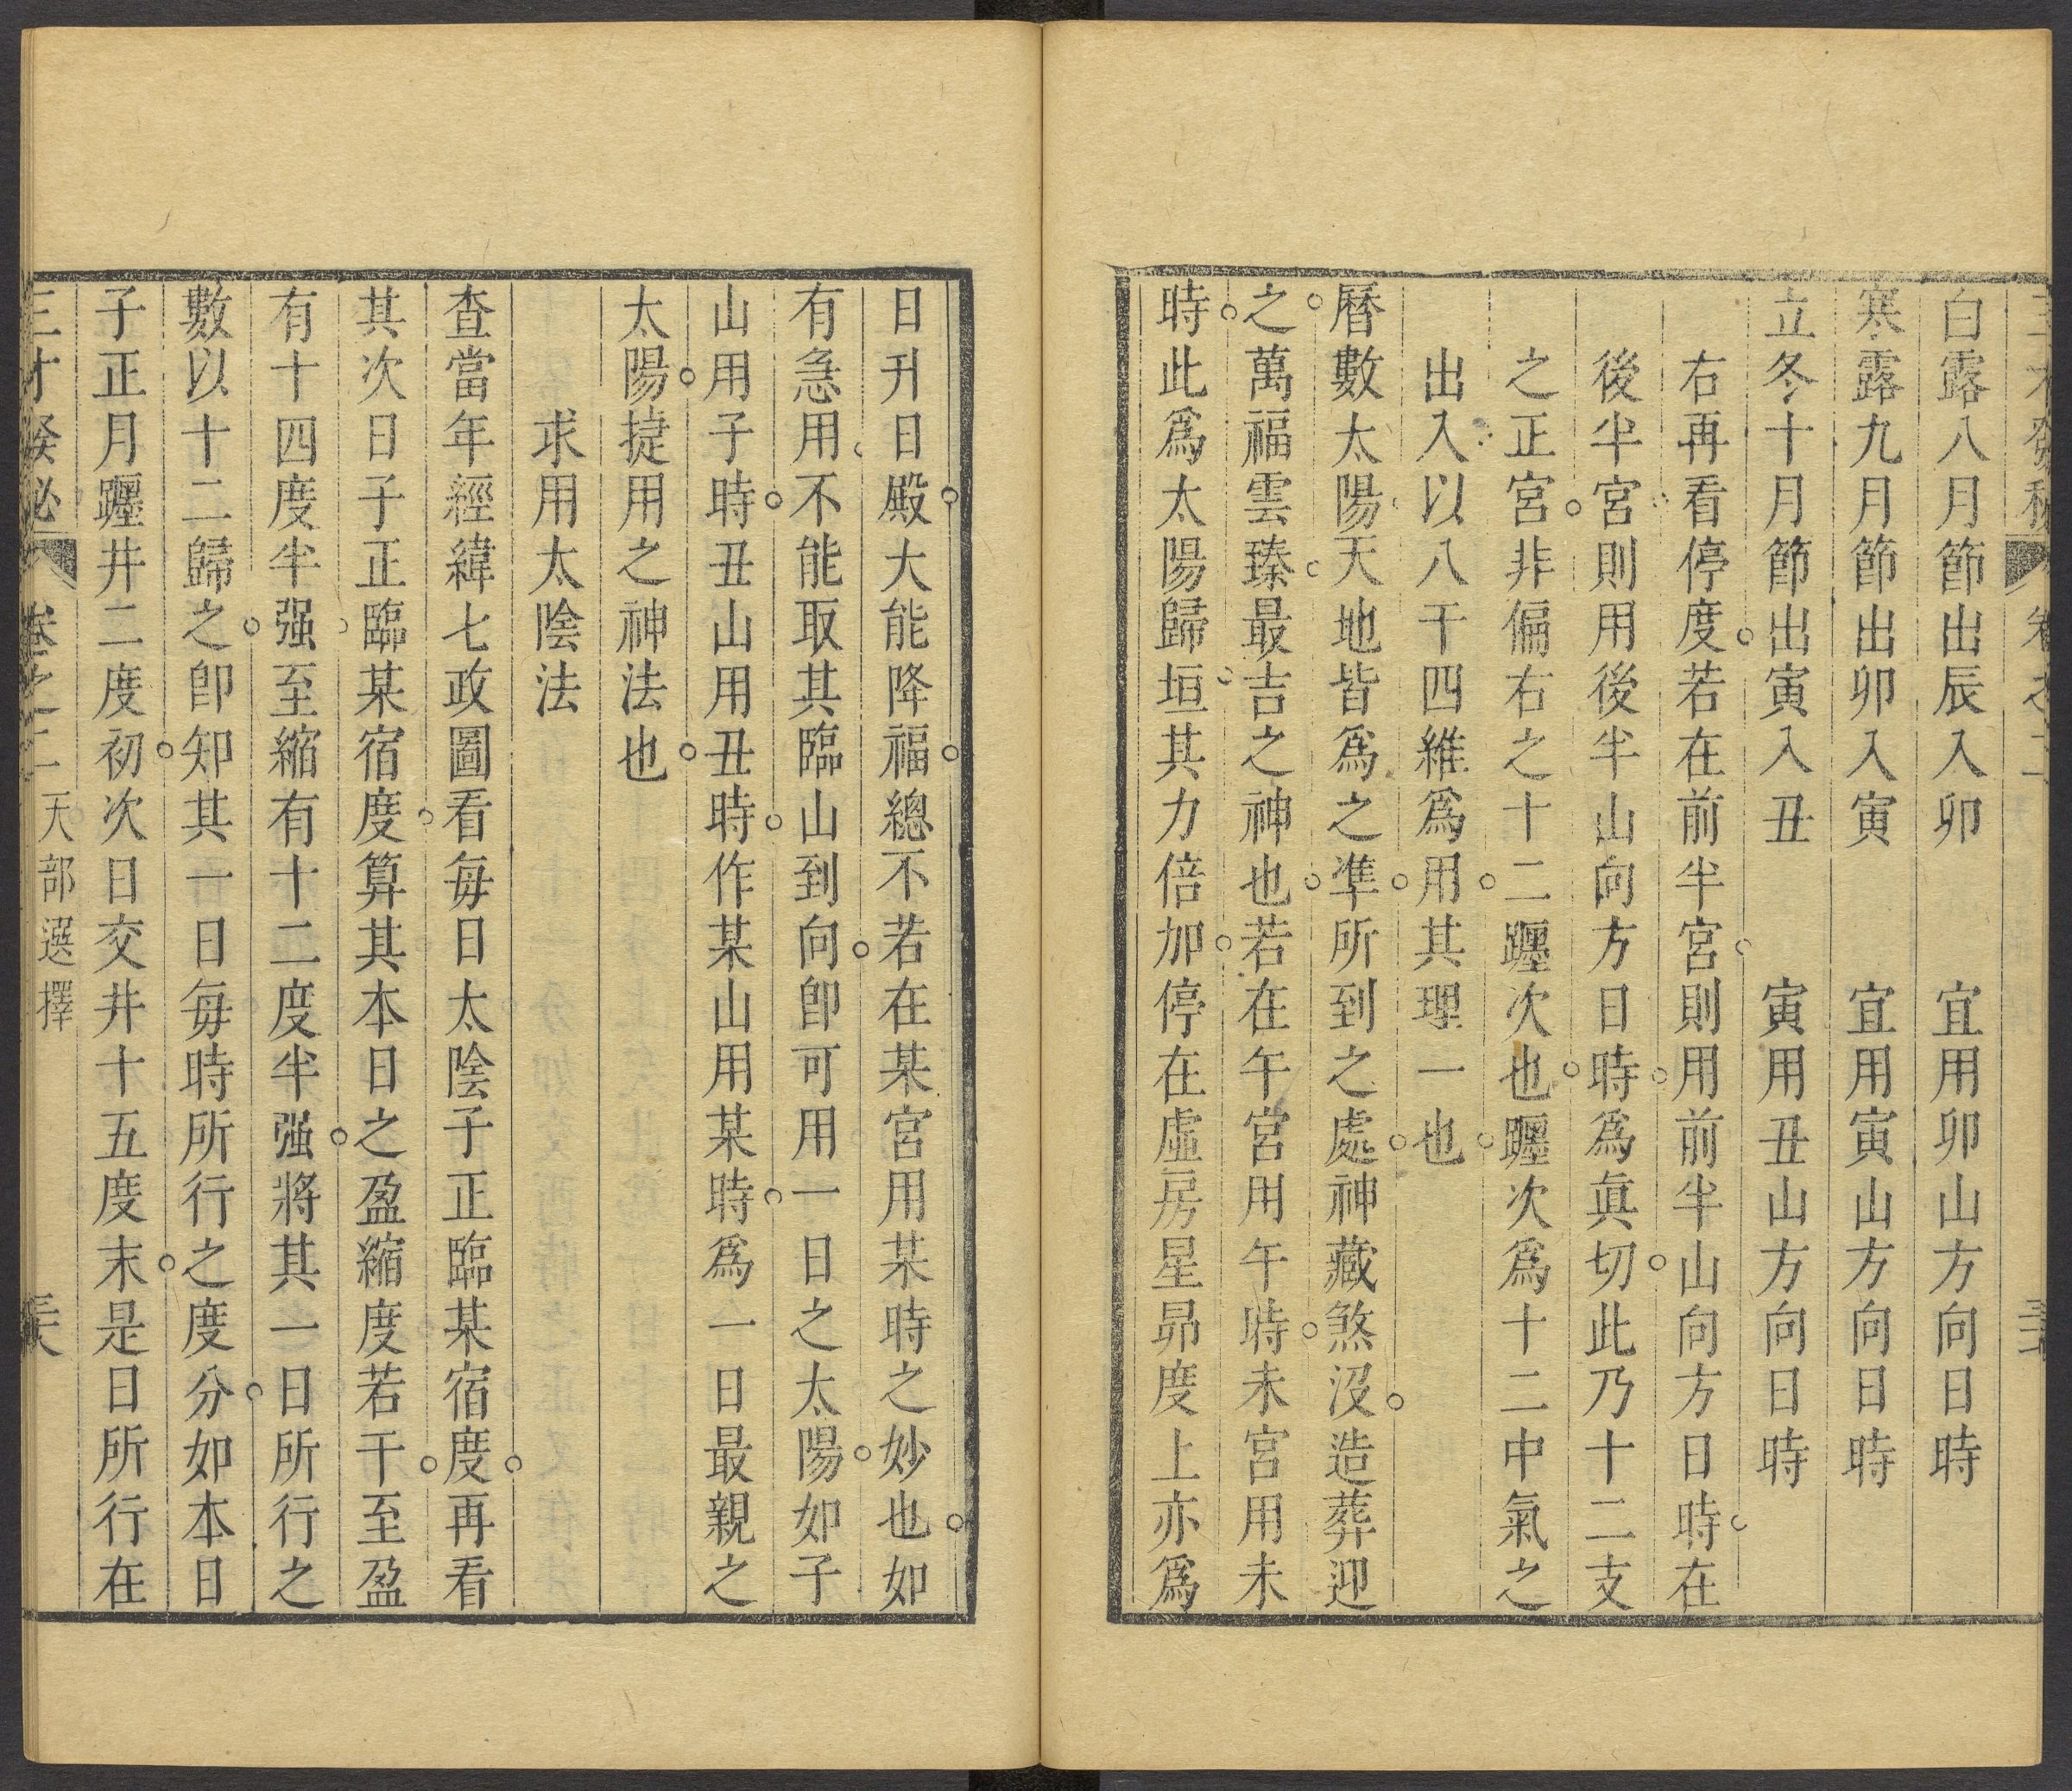 白露八月節出辰入卯　宜用卯山方向日時
寒露九月節出卯入寅　宜用寅山方向日時
立冬十月節出寅入丑　寅用丑山方向日時
右再看停度若在前半宮則用前半山向方日時在
後半宮則用後半山向方日時爲眞切此乃十二支
之正宮非偏右之十二躔次也躔次爲十二中氣之
出入以八干四維爲用其理一也
曆數太陽天地皆爲之準所到之處神藏煞沒造葬迎
之萬福雲臻最吉之神也若在午宮用午時未宮用未
時此爲太陽歸垣其力倍加停在虛房星昴度上亦爲
日升日殿大能降福總不若在某宮用某時之妙也如
有急用不能取其臨山到向卽可用一日之太陽如子
山用子時丑山用丑時作某山用某時爲一日最親之
太陽捷用之神法也
求用太陰法
查當年經緯七政圖看每日太陰子正臨某宿度再看
其次日子正臨某宿度算其本日之盈縮度若干至盈
有十四度半强至縮有十二度半强將其一日所行之
數以十二歸之卽知其一日每時所行之度分如本日
子正月躔井二度初次日交井十五度末是日所行在
三才發秘　卷之二　天部選擇